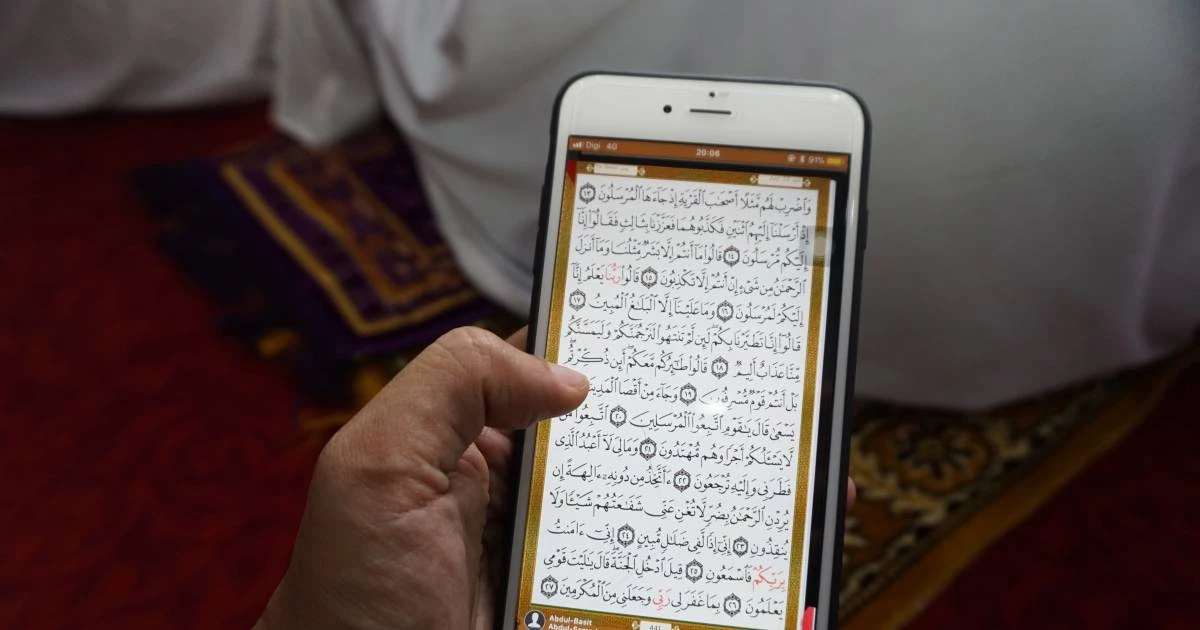 Digi 4G 20:06 91%
وَٱضْرِبْ لَهُم مَّثَلًا أَصْحَٰبَ ٱلْقَرْيَةِ إِذْ جَآءَهَا ٱلْمُرْسَلُونَ ١٣
إِذْ أَرْسَلْنَآ إِلَيْهِمُ ٱثْنَيْنِ فَكَذَّبُوهُمَا فَعَزَّزْنَا بِثَالِثٍ فَقَالُوٓا۟ إِنَّآ
إِلَيْكُم مُّرْسَلُونَ ١٤ قَالُوا۟ مَآ أَنتُمْ إِلَّا بَشَرٌ مِّثْلُنَا وَمَآ أَنزَلَ
ٱلرَّحْمَٰنُ مِن شَىْءٍ إِنْ أَنتُمْ إِلَّا تَكْذِبُونَ ١٥ قَالُوا۟ رَبُّنَا يَعْلَمُ إِنَّآ
إِلَيْكُمْ لَمُرْسَلُونَ ١٦ وَمَا عَلَيْنَآ إِلَّا ٱلْبَلَٰغُ ٱلْمُبِينُ ١٧
قَالُوٓا۟ إِنَّا تَطَيَّرْنَا بِكُمْ لَئِن لَّمْ تَنتَهُوا۟ لَنَرْجُمَنَّكُمْ وَلَيَمَسَّنَّكُم
مِّنَّا عَذَابٌ أَلِيمٌ ١٨ قَالُوا۟ طَٰٓئِرُكُم مَّعَكُمْ أَئِن ذُكِّرْتُم
بَلْ أَنتُمْ قَوْمٌ مُّسْرِفُونَ ١٩ وَجَآءَ مِنْ أَقْصَا ٱلْمَدِينَةِ
يَسْعَىٰ قَالَ يَٰقَوْمِ ٱتَّبِعُوا۟ ٱلْمُرْسَلِينَ ٢٠ ٱتَّبِعُوا۟ مَن
لَّا يَسْـَٔلُكُمْ أَجْرًا وَهُم مُّهْتَدُونَ ٢١ وَمَا لِىَ لَآ أَعْبُدُ ٱلَّذِى
فَطَرَنِى وَإِلَيْهِ تُرْجَعُونَ ٢٢ ءَأَتَّخِذُ مِن دُونِهِۦٓ ءَالِهَةً إِن
يُرِدْنِ ٱلرَّحْمَٰنُ بِضُرٍّ لَّا تُغْنِ عَنِّى شَفَٰعَتُهُمْ شَيْـًٔا وَلَا
يُنقِذُونِ ٢٣ إِنِّىٓ إِذًا لَّفِى ضَلَٰلٍ مُّبِينٍ ٢٤ إِنِّىٓ ءَامَنتُ
بِرَبِّكُمْ فَٱسْمَعُونِ ٢٥ قِيلَ ٱدْخُلِ ٱلْجَنَّةَ قَالَ يَٰلَيْتَ قَوْمِى
يَعْلَمُونَ ٢٦ بِمَا غَفَرَ لِى رَبِّى وَجَعَلَنِى مِنَ ٱلْمُكْرَمِينَ ٢٧
Abdul-Basit
441